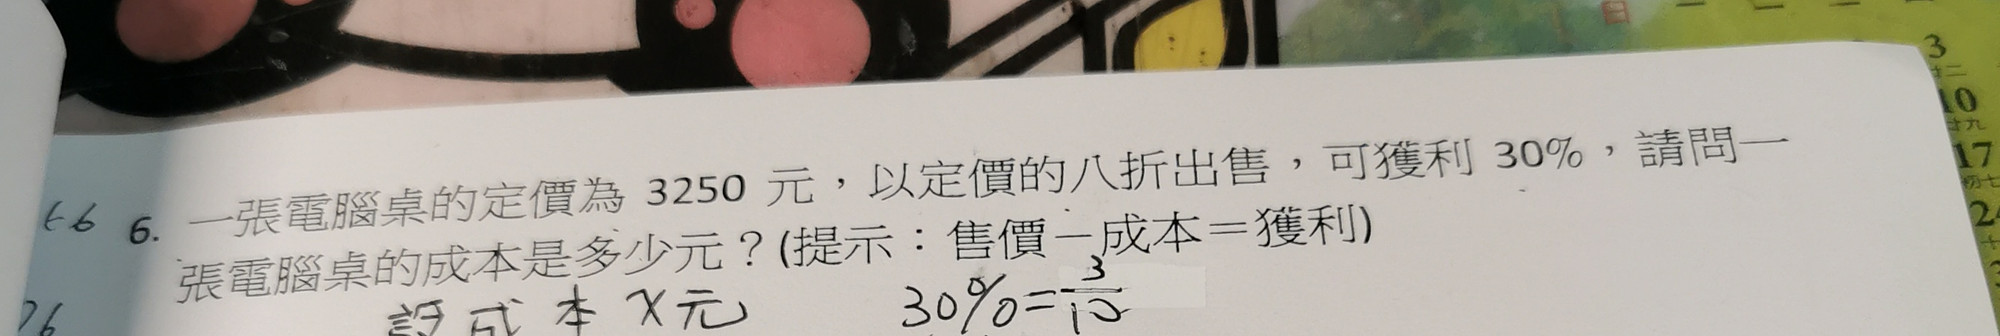 6. 一張電腦桌的定價為 3250 元，以定價的八折出售，可獲利 30%，請問一
張電腦桌的成本是多少元？(提示：售價－成本＝獲利)
設成本 X元 30%=3/10
3
廿二
10
廿九
17
初七